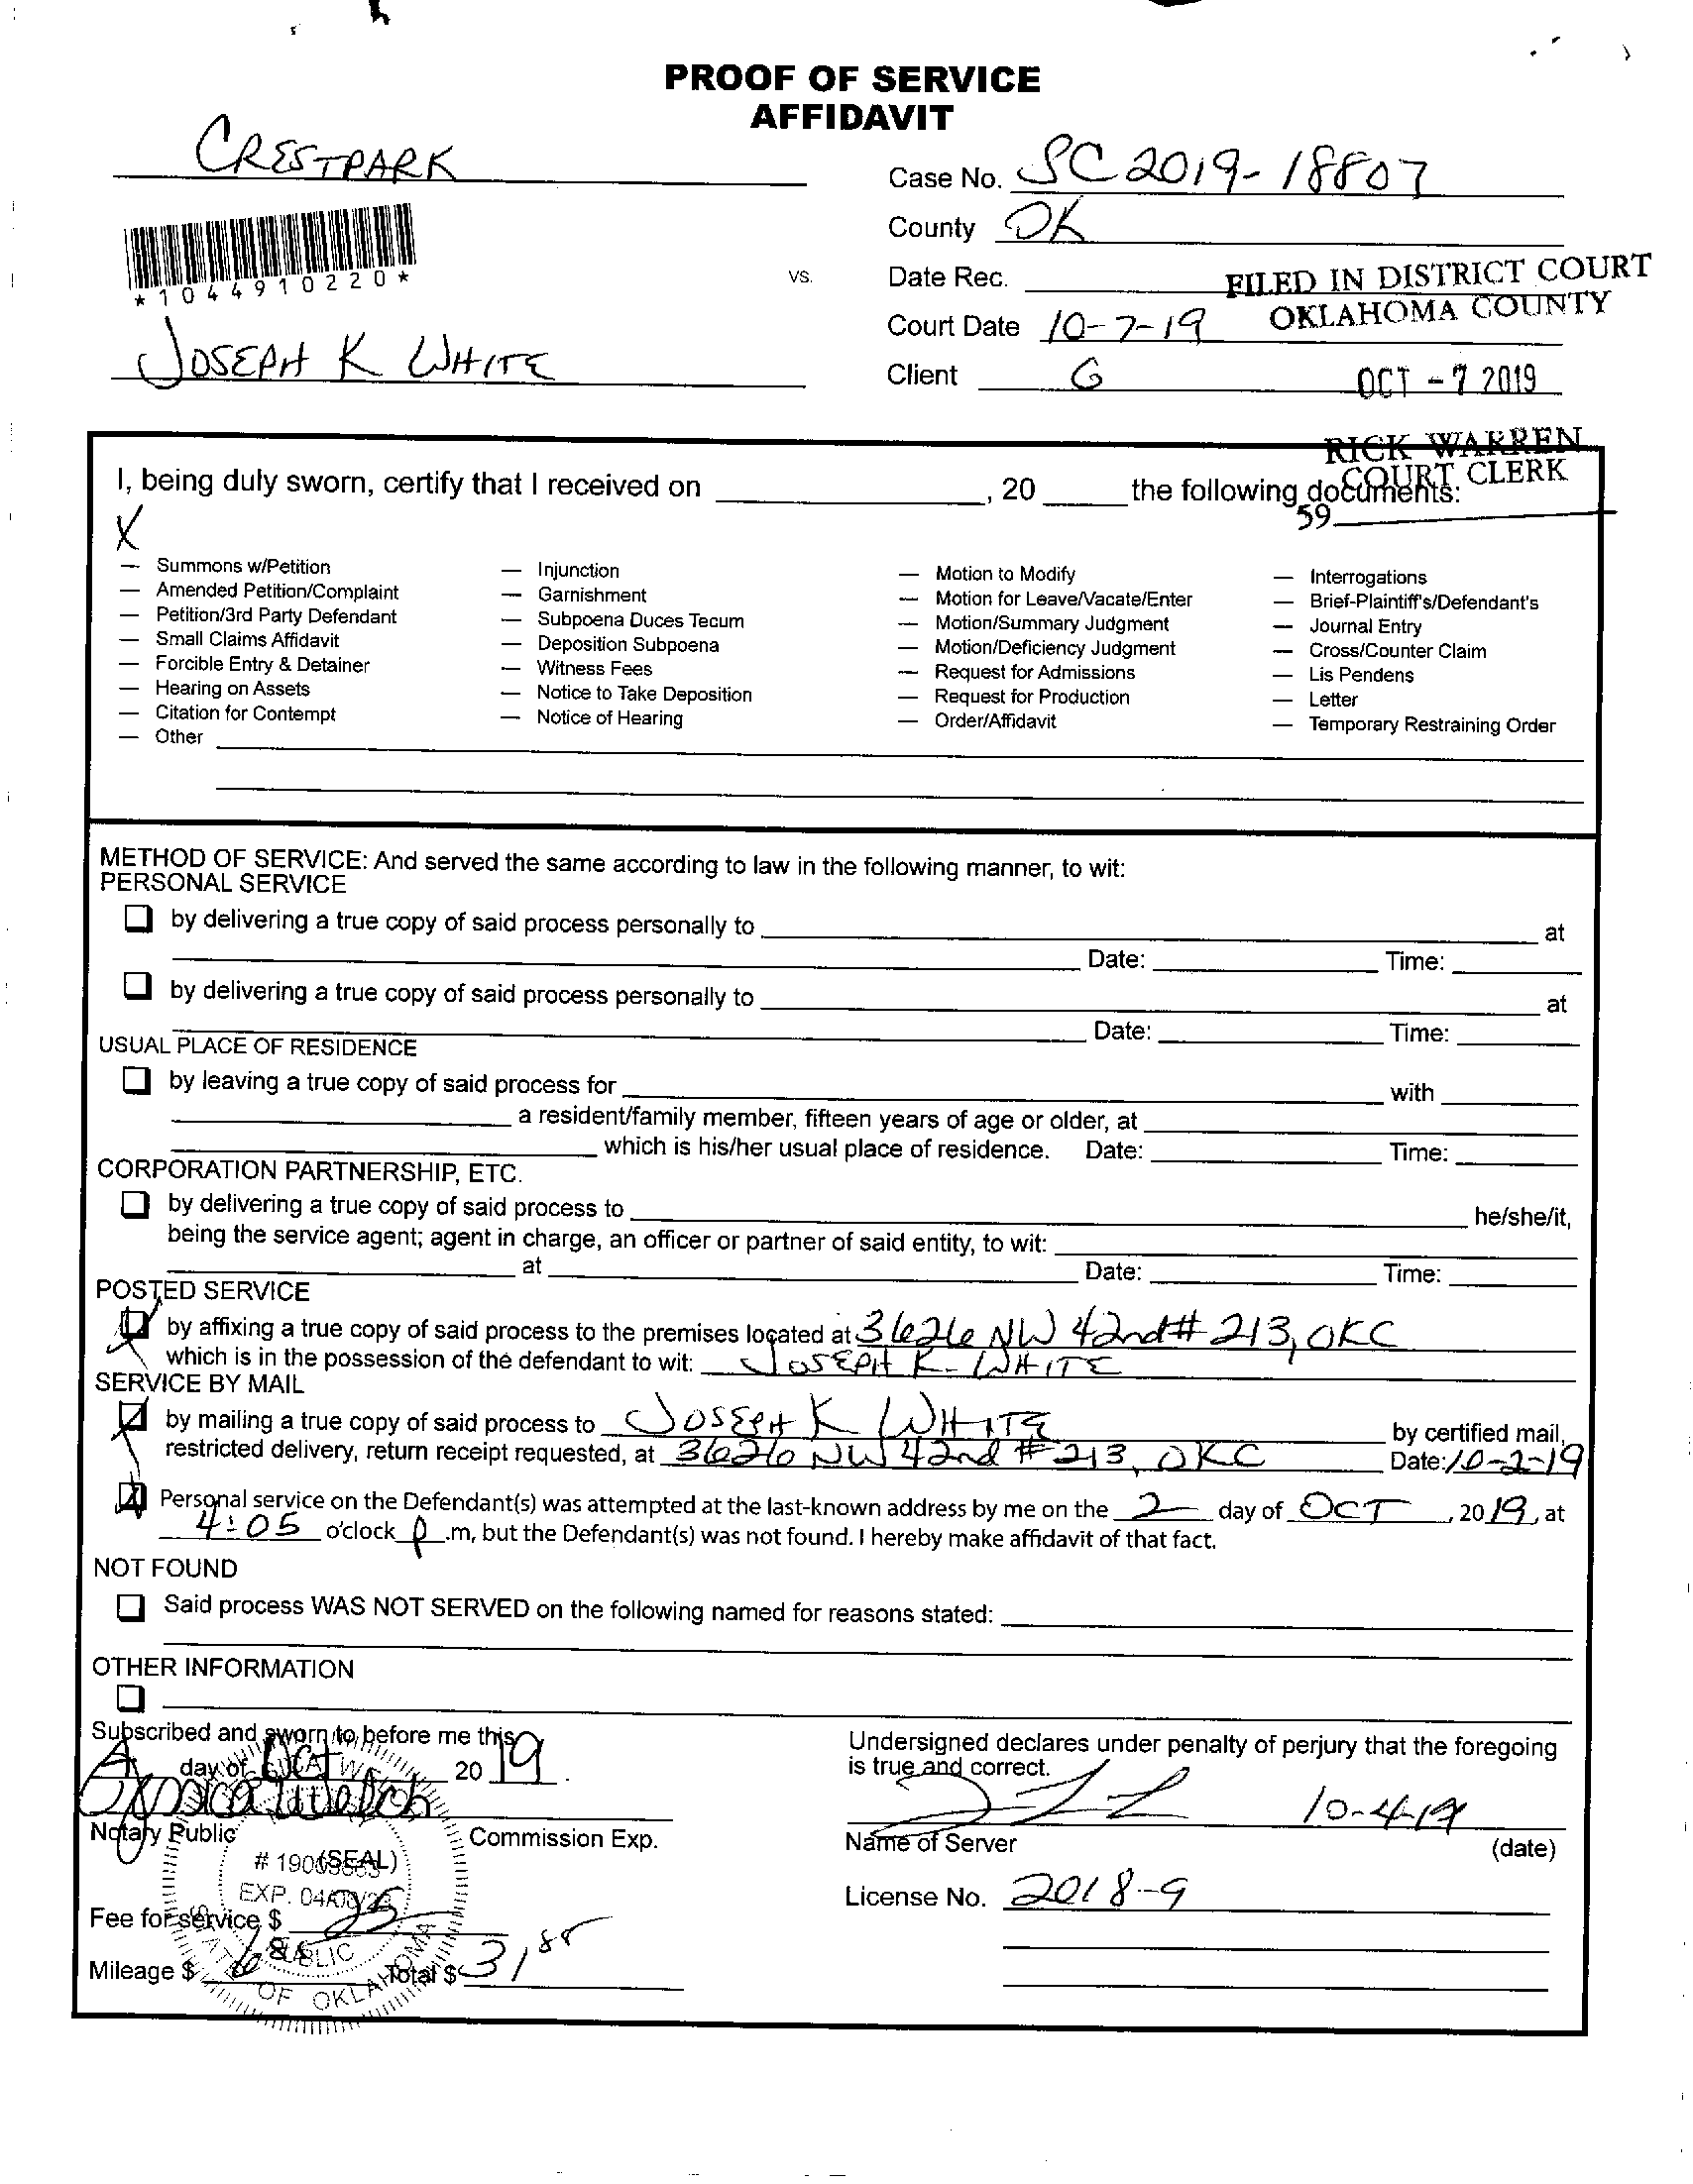 PROOF OF SERVICE
AFFIDAVIT
CRESTPARK
Case No. SC 2019-18807
County OK
*1044910220*
vs.
Date Rec.
FILED IN DISTRICT COURT
OKLAHOMA COUNTY
Court Date 10-7-19
JOSEPH K WHITE
Client G
OCT - 7 2019
RICK WARREN
COURT CLERK
I, being duly sworn, certify that I received on ____, 20 ____ the following documents:
59
X
— Summons w/Petition
— Amended Petition/Complaint
— Petition/3rd Party Defendant
— Small Claims Affidavit
— Forcible Entry & Detainer
— Hearing on Assets
— Citation for Contempt
— Other
— Injunction
— Garnishment
— Subpoena Duces Tecum
— Deposition Subpoena
— Witness Fees
— Notice to Take Deposition
— Notice of Hearing
— Motion to Modify
— Motion for Leave/Vacate/Enter
— Motion/Summary Judgment
— Motion/Deficiency Judgment
— Request for Admissions
— Request for Production
— Order/Affidavit
— Interrogations
— Brief-Plaintiff's/Defendant's
— Journal Entry
— Cross/Counter Claim
— Lis Pendens
— Letter
— Temporary Restraining Order
METHOD OF SERVICE: And served the same according to law in the following manner, to wit:
PERSONAL SERVICE
by delivering a true copy of said process personally to ____ at
Date: ____ Time: ____
by delivering a true copy of said process personally to ____ at
Date: ____ Time: ____
USUAL PLACE OF RESIDENCE
by leaving a true copy of said process for ____ with ____
a resident/family member, fifteen years of age or older, at ____
which is his/her usual place of residence. Date: ____ Time: ____
CORPORATION PARTNERSHIP, ETC.
by delivering a true copy of said process to ____ he/she/it,
being the service agent; agent in charge, an officer or partner of said entity, to wit: ____
at ____ Date: ____ Time: ____
POSTED SERVICE
by affixing a true copy of said process to the premises located at 3626 NW 42nd # 213, OKC
which is in the possession of the defendant to wit: JOSEPH K. WHITE
SERVICE BY MAIL
by mailing a true copy of said process to JOSEPH K WHITE by certified mail,
restricted delivery, return receipt requested, at 3626 NW 42nd # 213, OKC Date: 10-2-19
Personal service on the Defendant(s) was attempted at the last-known address by me on the 2 day of OCT, 2019, at
4:05 o'clock p.m, but the Defendant(s) was not found. I hereby make affidavit of that fact.
NOT FOUND
Said process WAS NOT SERVED on the following named for reasons stated:
OTHER INFORMATION
Subscribed and sworn to before me this
4 day of Oct 2019.
Notary Public
Commission Exp.
(SEAL)
EXP.
PUBLIC
STATE OF OKLAHOMA
Fee for service $ 25
Mileage $ 6 88 Total $ 31,88
Undersigned declares under penalty of perjury that the foregoing
is true and correct.
10-4-19
Name of Server (date)
License No. 2018-9